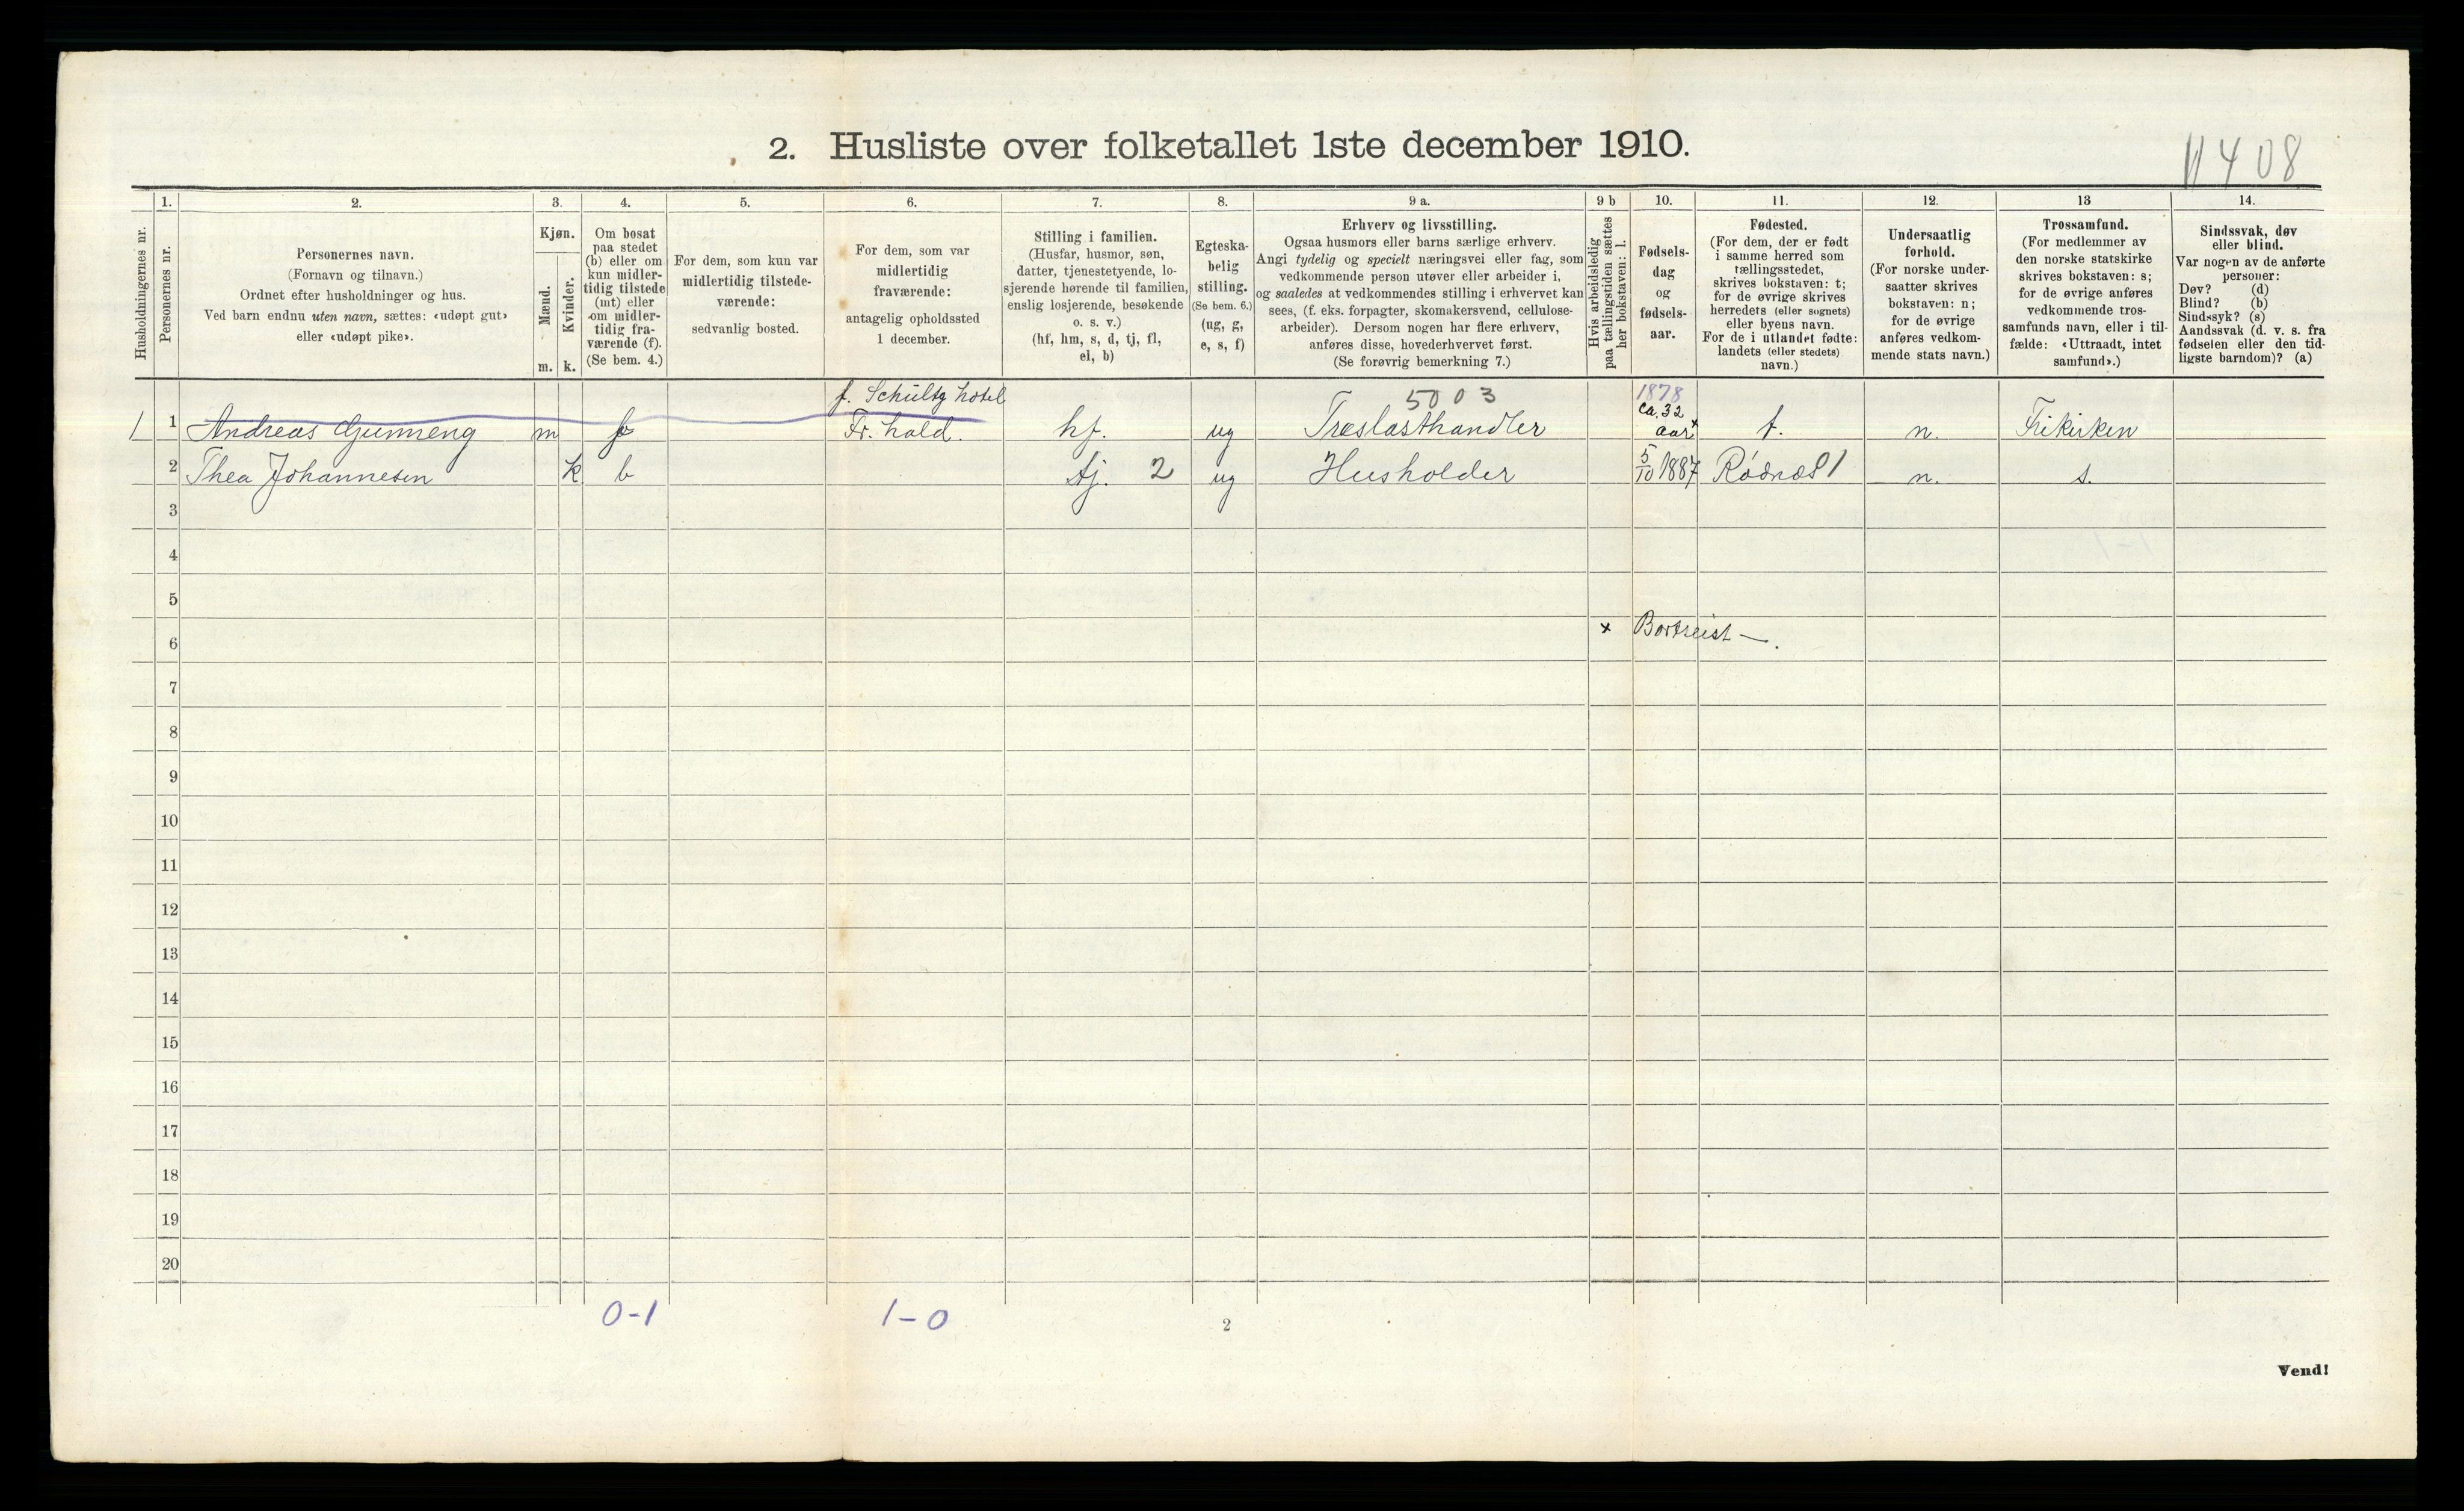 2. Husliste over folketallet 1ste december 1910.
11408
Husholdningernes nr.
1.
Personernes nr.
2.
Personernes navn.
(Fornavn og tilnavn.)
Ordnet efter husholdninger og hus.
Ved barn endnu uten navn, sættes: «udøpt gut»
eller «udøpt pike».
3.
Kjøn.
Mænd.
Kvinder.
m. k.
4.
Om bosat
paa stedet
(b) eller om
kun midler-
tidig tilstede
(mt) eller
om midler-
tidig fra-
værende (f).
(Se bem. 4.)
5.
For dem, som kun var
midlertidig tilstede-
værende:
sedvanlig bosted.
6.
For dem, som var
midlertidig
fraværende:
antagelig opholdssted
1 december.
7.
Stilling i familien.
(Husfar, husmor, søn,
datter, tjenestetyende, lo-
sjerende hørende til familien,
enslig losjerende, besøkende
o. s. v.)
(hf, hm, s, d, tj, fl,
el, b)
8.
Egteska-
belig
stilling.
(Se bem. 6.)
(ug, g,
e, s, f)
9 a.
Erhverv og livsstilling.
Ogsaa husmors eller barns særlige erhverv.
Angi tydelig og specielt næringsvei eller fag, som
vedkommende person utøver eller arbeider i,
og saaledes at vedkommendes stilling i erhvervet kan
sees, (f. eks. forpagter, skomakersvend, cellulose-
arbeider). Dersom nogen har flere erhverv,
anføres disse, hovederhvervet først.
(Se forøvrig bemerkning 7.)
9 b
Hvis arbeidsledig
paa tællingstiden sættes
her bokstaven: l.
10.
Fødsels-
dag
og
fødsels-
aar.
11.
Fødested.
(For dem, der er født
i samme herred som
tællingsstedet,
skrives bokstaven: t;
for de øvrige skrives
herredets (eller sognets)
eller byens navn.
For de i utlandet fødte:
landets (eller stedets)
navn.)
12.
Undersaatlig
forhold.
(For norske under-
saatter skrives
bokstaven: n;
for de øvrige
anføres vedkom-
mende stats navn.)
13
Trossamfund.
(For medlemmer av
den norske statskirke
skrives bokstaven: s;
for de øvrige anføres
vedkommende tros-
samfunds navn, eller i til-
fælde: «Uttraadt, intet
samfund».)
14.
Sindssvak, døv
eller blind.
Var nogen av de anførte
personer:
Døv? (d)
Blind? (b)
Sindssyk? (s)
Aandssvak (d. v. s. fra
fødselen eller den tid-
ligste barndom)? (a)
f. Schultz hotel 5003 1878
1 1 Andreas Gunneng m f Fr. hald. hf. ug Træslasthandler ca. 32 aar x t. n. Frikirken
2 Thea Johannesen k b tj. 2 ug Husholder 5/10 1887 Rødnæs 1 n. s.
3
4
5
6 x Bortreist —.
7
8
9
10
11
12
13
14
15
16
17
18
19
20
0-1 1-0
2
Vend!